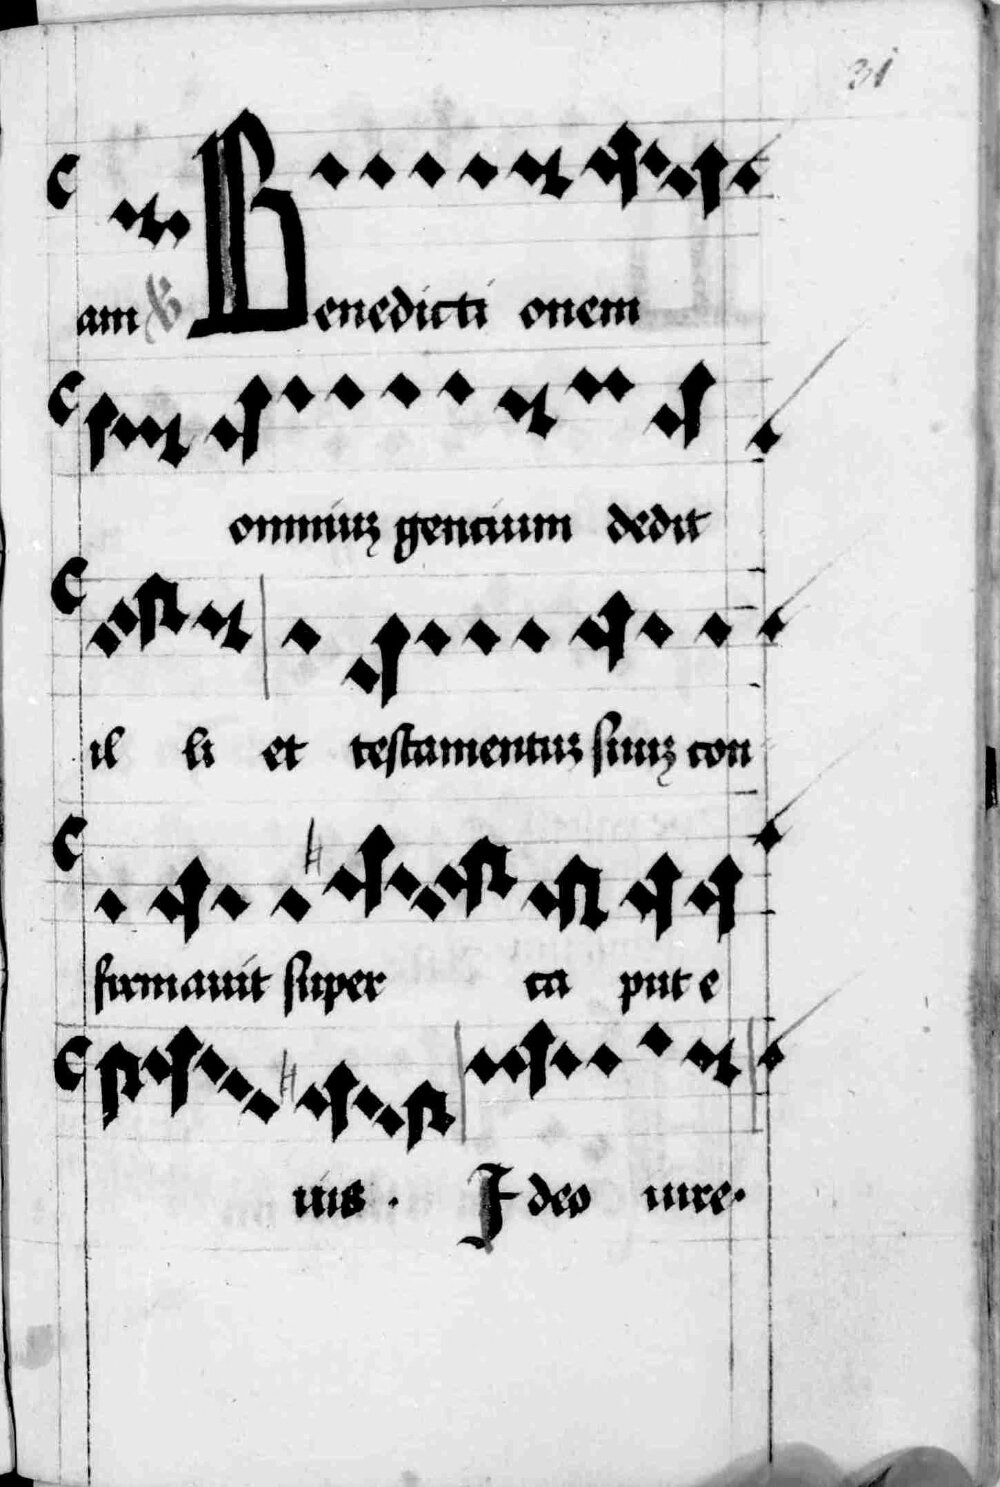 31
am ℣ Benedicti onem
omniuꝫ gencium dedit
il li et testamentuꝫ suuꝫ con
firmauit super ca put e
ius . Ideo iure.